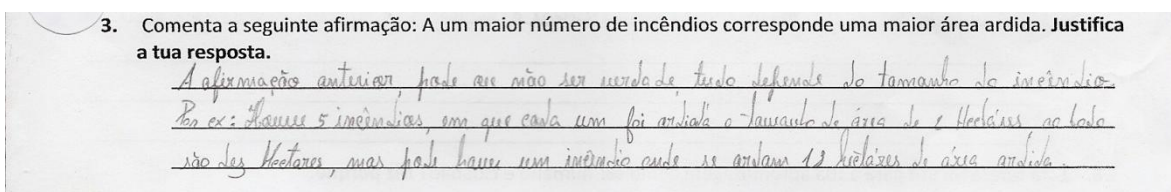 3. Comenta a seguinte afirmação: A um maior número de incêndios corresponde uma maior área ardida. Justifica
a tua resposta.
A afirmação anterior, pode ou não ser verdade, tudo depende do tamanho do incêndio.
Por ex: Houve 5 incêndios, em que cada um foi ardida o tamanho de área de 2 Hectáres ao todo
são des Hectares, mas pode haver um incêndio onde se ardam 12 hectáres de área ardida.